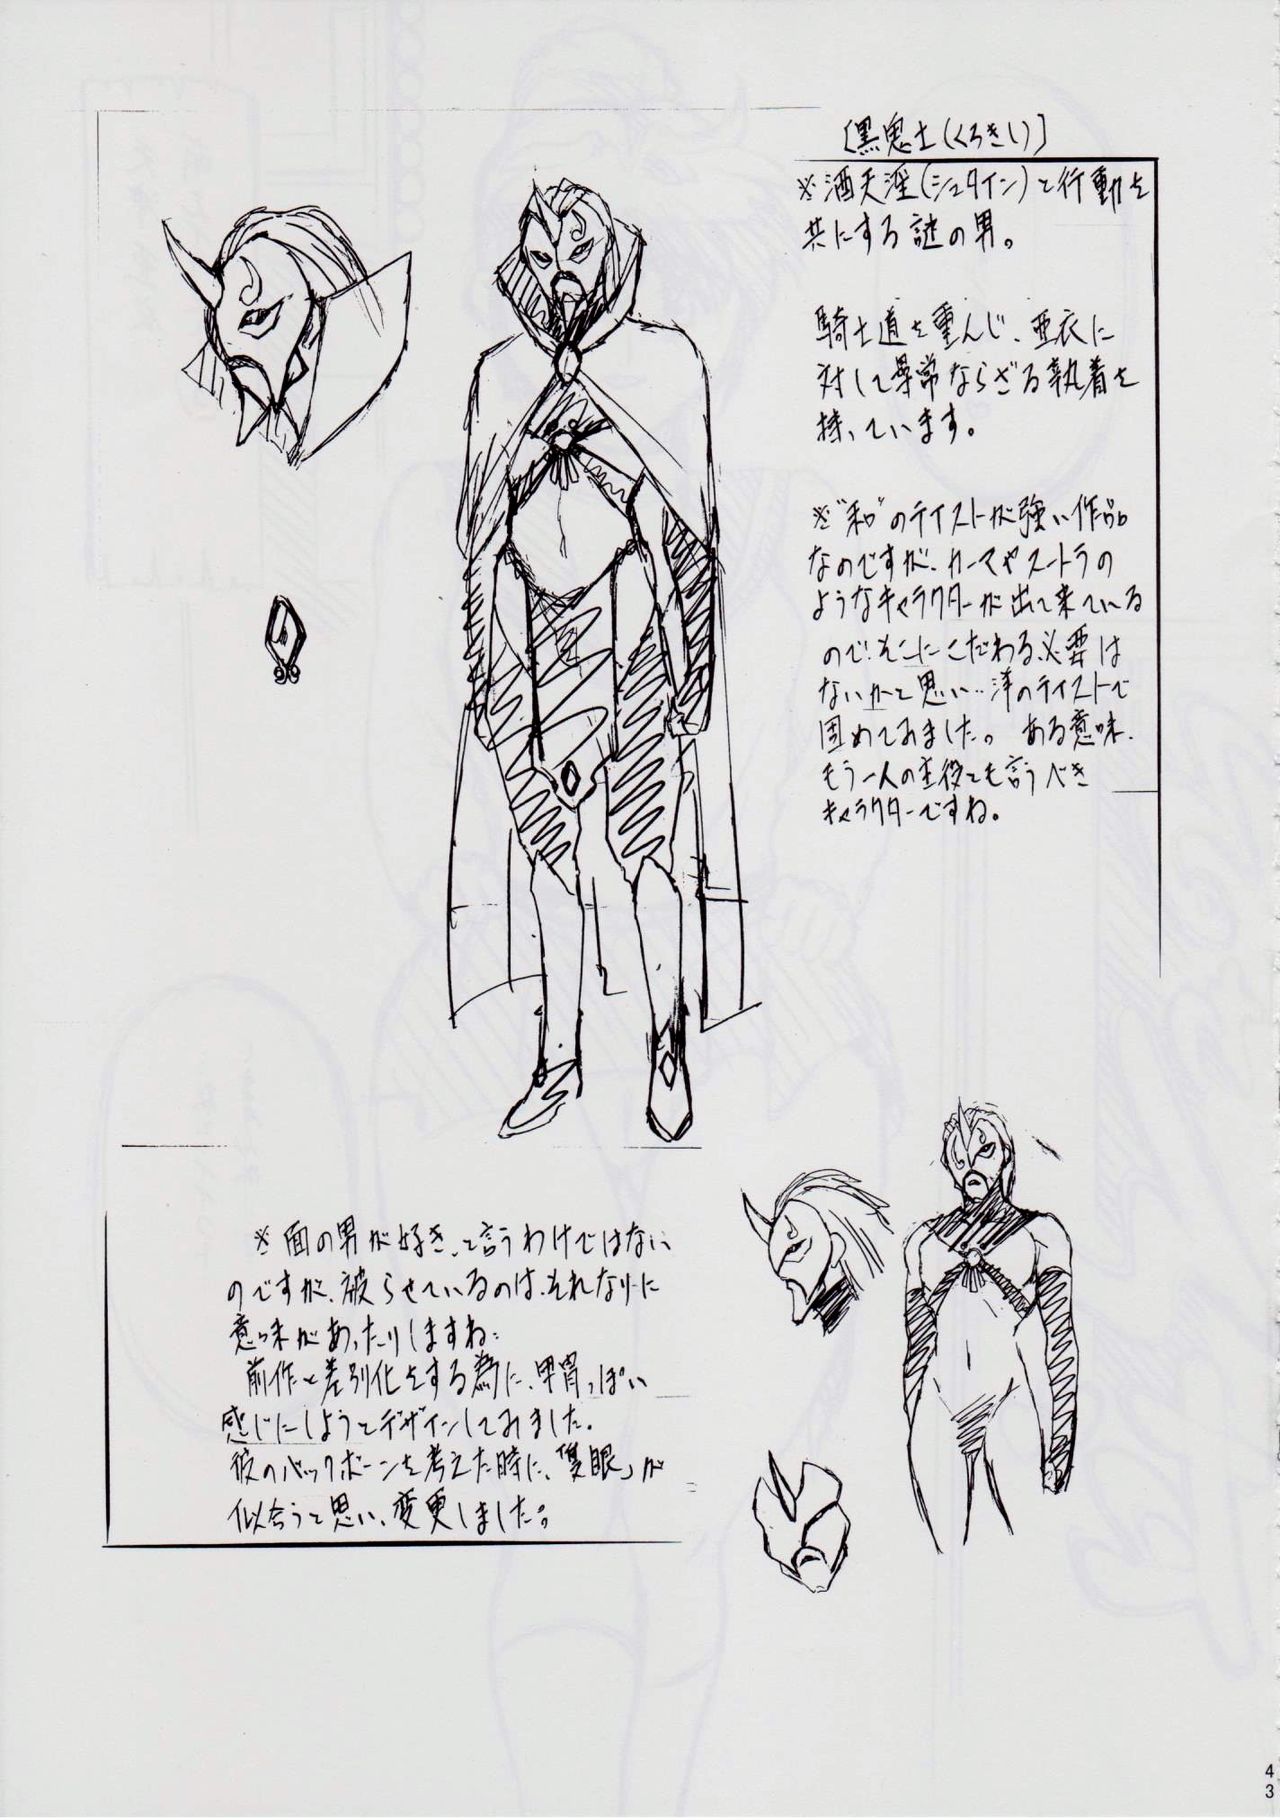 〔黒鬼士(くろきし)〕
※酒天淫(シュタイン)と行動を
共にする謎の男。
騎士道を重んじ、亜衣に
対して異常ならざる執着を
持っています。
※“和”のテイストが強い作品
なのですが、カーマやスートラの
ようなキャラクターが出て来ている
ので、そこにこだわる必要は
ないかと思い…洋のテイストで
固めてみました。ある意味、
もう一人の主役とも言うべき
キャラクターですね。
※面の男が好き、と言うわけではない
のですが、被らせているのは、それなりに
意味があったりしますね…
前作と差別化をする為に、甲冑っぽい
感じにしようとデザインしてみました。
彼のバックボーンを考えた時に、「隻眼」が
似合うと思い、変更しました。
43